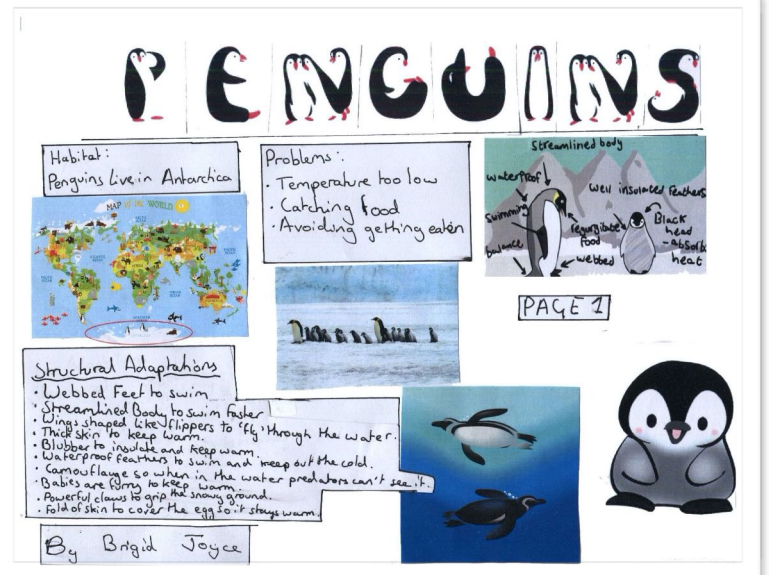 PENGUINS
Habitat:
Penguins Live in Antarctica
MAP of the WORLD
Problems:
· Temperature too low
· Catching food
· Avoiding getting eaten
Streamlined body
waterproof
well insolated feathers
Swimming
regurgitate
food
Black
head
-absorbs
heat
balance
webbed
PAGE 1
Structural Adaptations
· Webbed Feet to swim
· Streamlined Body to swim faster
· Wings shaped like flippers to 'fly' through the water.
· Thick skin to keep warm.
· Blubber to insulate and keep warm.
· Waterproof feathers to swim and keep out the cold.
· Camouflauge so when in the water predators can't see it.
· Babies are furry to keep warm.
· Powerful claws to grip the snowy ground.
· Fold of skin to cover the egg so it stays warm.
By Brigid Joyce